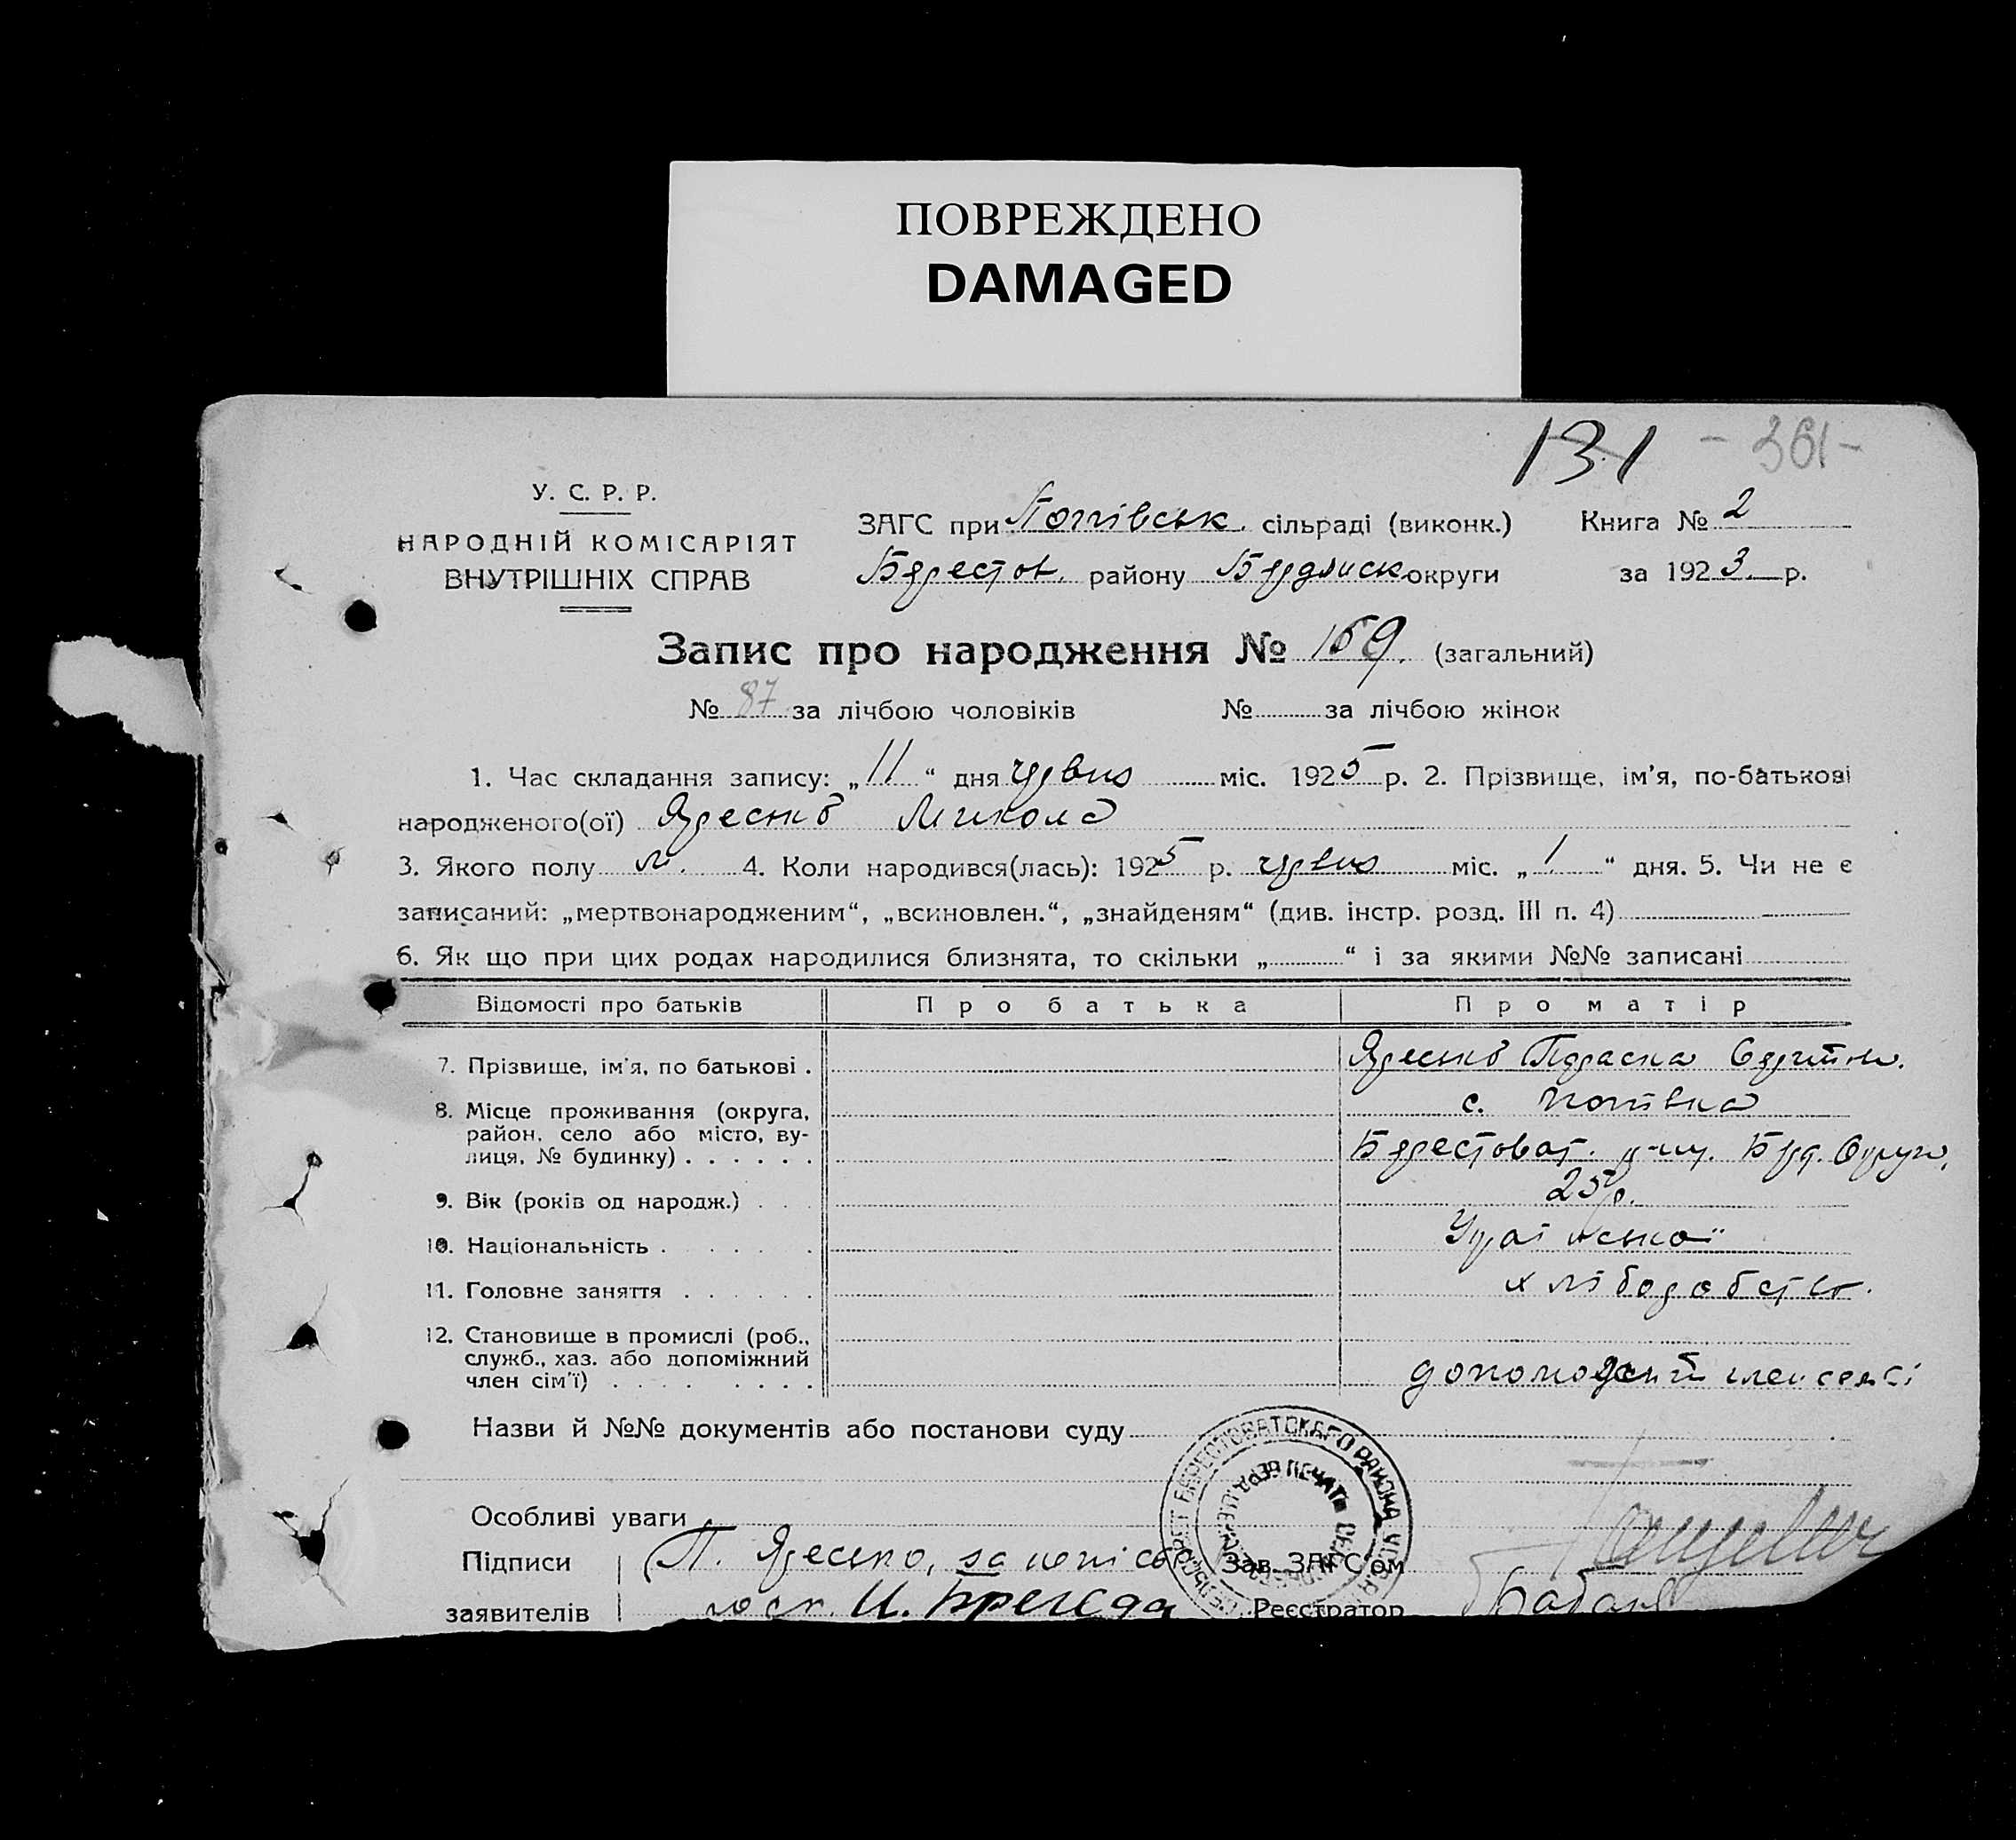 ПОВРЕЖДЕНО
DAMAGED
131 - 361 -
У. С. Р. Р.
НАРОДНІЙ КОМІСАРІЯТ
ВНУТРІШНІХ СПРАВ
ЗАГС при Попівськ. сільраді (виконк.) Книга № 2
Берестов. району Бердянськ округи за 1923 р.
Запис про народження № 159. (загальний)
№ 87 за лічбою чоловіків № за лічбою жінок
1. Час складання запису: „11“ дня червня міс. 1925 р. 2. Прізвище, ім'я, по-батькові
народженого(ої) Яресько Микола
3. Якого полу м. 4. Коли народився(лась): 1925 р. червня міс. „1“ дня. 5. Чи не є
записаний: „мертвонародженим“, „всиновлен.“, „знайденям“ (див. інстр. розд. III п. 4)
6. Як що при цих родах народилися близнята, то скільки „ “ і за якими №№ записані
Відомості про батьків Про батька Про матір
7. Прізвище, ім'я, по батькові . Яресько Параска
8. Місце проживання (округа, с. Попівка
район, село або місто, ву-
лиця, № будинку) . . . . . . Берестоват. р-ну. Берд. Округи,
9. Вік (років од народж.) . . . 25 р.
10. Національність . . . . . . Української
11. Головне заняття . . . . . . хліборобство.
12. Становище в промислі (роб.,
служб., хаз. або допоміжний
член сім'ї) . . . . . . . . допоможний член семї
Назви й №№ документів або постанови суду
БЕРЕСТОВАТСКАГО РАЙОНА
Особливі уваги
Підписи П. Яресько, за Зав. ЗАГС'ом
заявителів И. Брегеда Реєстратор